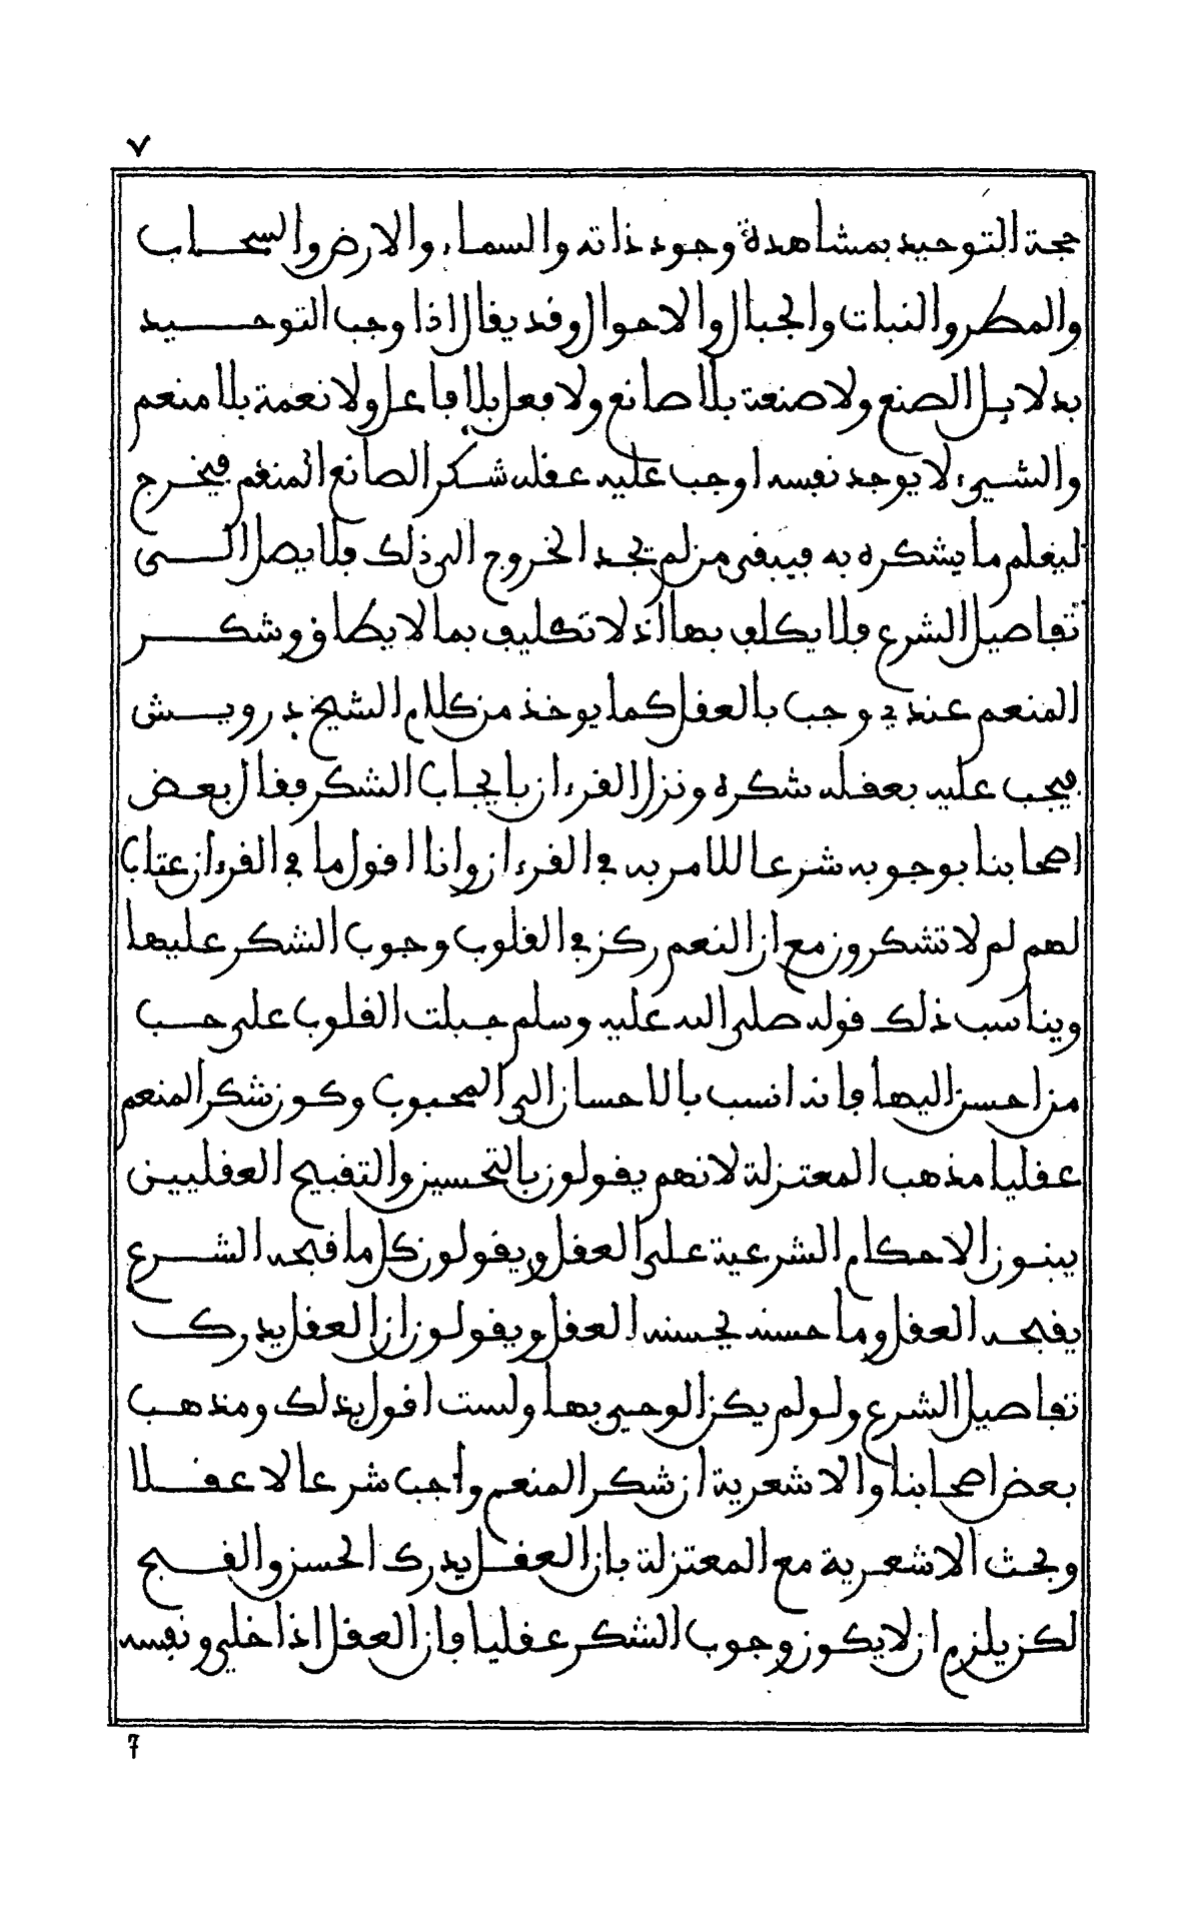 ٧
حجة التوحيد بمشاهدة وجود ذاته والسماء والارض والسحاب
والمطر والنبات والجبال والاحوال وقد يقال اذا وجب التوحيد
بدلايل الصنع ولا صنعة بلا صانع ولا فعل بلا فاعل ولا نعمة بلا منعم
والشيء لا يوجد نفسه اوجب عليه عقله شكر الصانع المنعم فيخرج
ليعلم ما يشكره به فيبقى من لم يجد الخروج الى ذلك فلا يصل الى
تفاصيل الشرع فلا يكلف بها اذ لا تكليف بما لا يطاق وشكر
المنعم عندي وجب بالعقل كما يوخذ من كلام الشيخ درويش
فيجب عليه بعقله شكره ونزل القرءان بايجاب الشكر فقال بعض
اصحابنا بوجوبه شرعا للامر به في القرءان وانا اقول ما في القرءان عتاب
لهم لم لا تشكرون مع ان النعم ركز في القلوب وجوب الشكر عليها
ويناسب ذلك قوله صلى الله عليه وسلم جبلت القلوب على حب
من احسن اليها فانه انسب بالاحسان الى المحبوب وكون شكر المنعم
عقليا مذهب المعتزلة لانهم يقولون بالتحسين والتقبيح العقليين
يبنون الاحكام الشرعية على العقل ويقولون كل ما قبحه الشرع
يقبحه العقل وما حسنه يحسنه العقل ويقولون ان العقل يدرك
تفاصيل الشرع ولو لم يكن الوحي بها ولست اقول بذلك ومذهب
بعض اصحابنا والاشعرية ان شكر المنعم واجب شرعا لا عقلا
وبحث الاشعرية مع المعتزلة بان العقل يدرك الحسن والقبح
لكن يلزم ان لا يكون وجوب الشكر عقليا فان العقل اذا خلي ونفسه
7